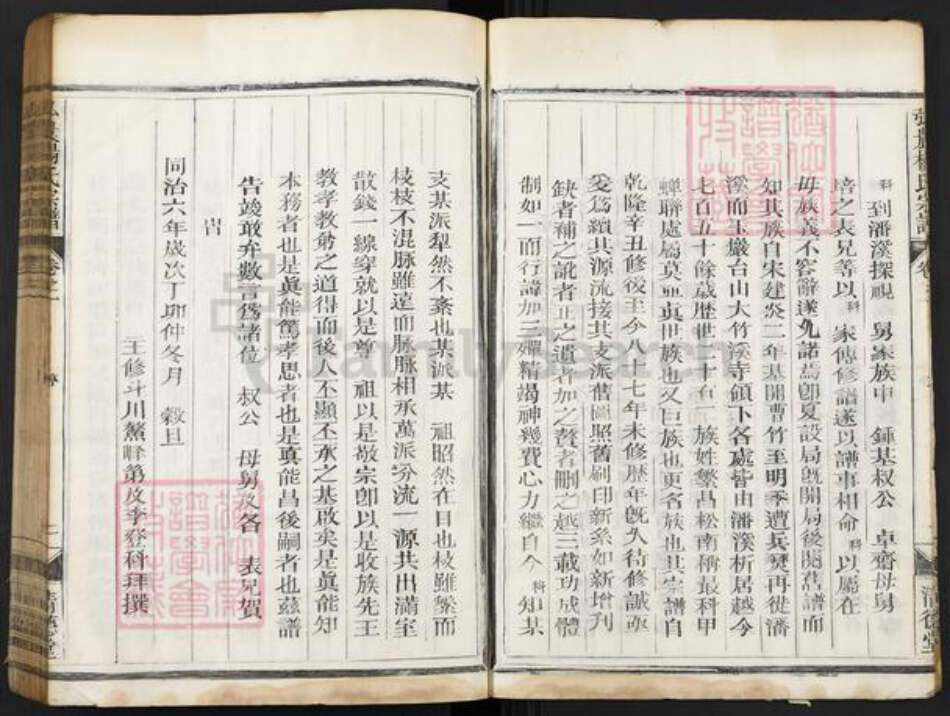 科到潘溪探視　舅家族中　鍾基叔公　卓齋母舅
培之表兄等以科　家傳修譜遂以譜事相命　科以屬在
毋族義不容辭遂允諾焉卽夏設局旣開局後閱舊譜而
知其族自宋建炎二年基開曹竹至明季遭兵燹再徙潘
溪而玉巖台山大竹溪寺領下各處皆由潘溪析居越今
七百五十餘歲歷世二十有一　族姓繁昌松南稱最科甲
蟬聯處屬莫並眞世族也又巨族也更名族也其宗譜自
乾隆辛丑修後至今八十七年未修歷年旣久待修誠亟
爰爲纘其源流接其支派舊圖照舊刷印新系如新增刊
缺者補之訛者正之遺者加之贅者刪之越三載功成體
制如一而行諱加三殫精竭神幾費心力繼自今　科知某
支某派犁然不紊也某派某　祖昭然在目也枝雖繁而
枝枝不混脉雖遠而脉脉相承萬派分流一源共出滿室
散錢一線穿就以是尊　祖以是敬宗卽以是收族先王
教孝教弟之道得而後人丕顯丕承之基啟矣是眞能知
本務者也是眞能篤孝思者也是眞能昌後嗣者也茲譜
告竣敢弁數言爲諸位　叔公　母舅及各　表兄賀
旹
同治六年歲次丁卯仲冬月　穀旦
主修斗川鰲峰第及李登科拜撰
卷之一
清德堂